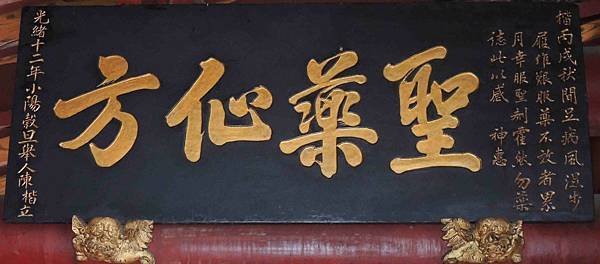 楷丙戌秋間足病風濕步
履維艱服藥不效者累
月幸服聖劑霍然勿藥
誌此以感 神惠
聖藥仙方
光緒十二年小陽穀旦舉人陳楷立